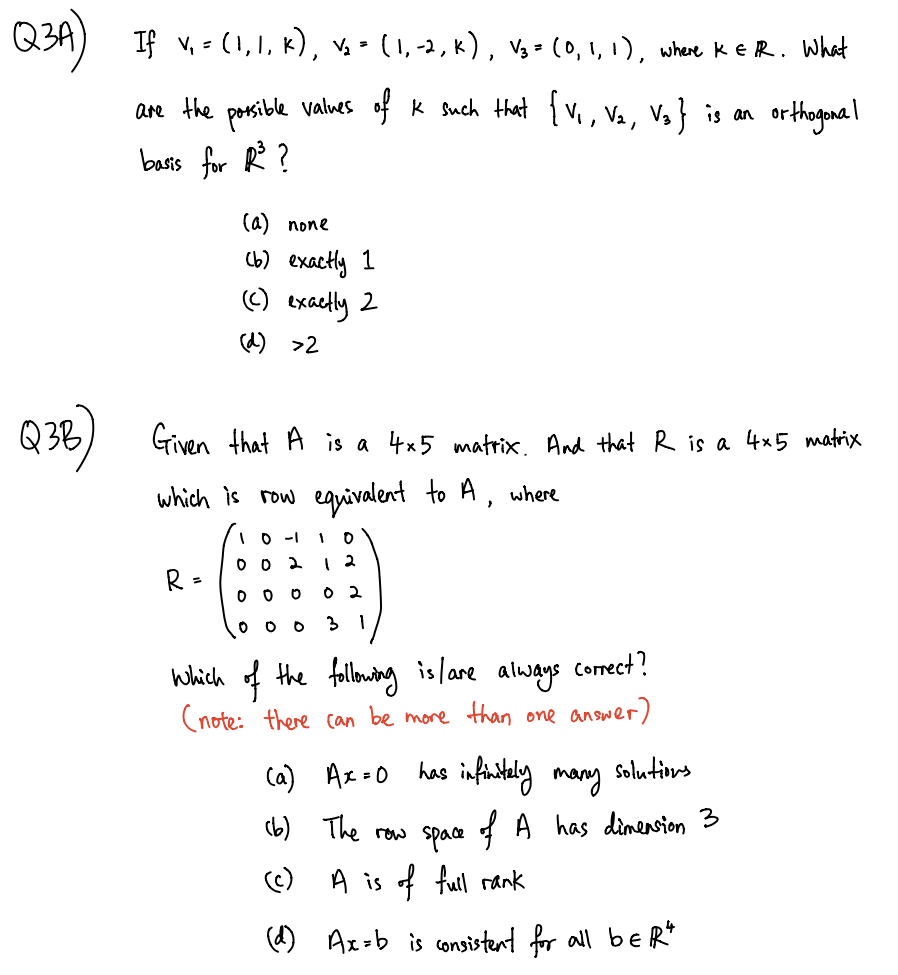 Q3A) If v₁ = (1, 1, k), v₂ = (1, -2, k), v₃ = (0, 1, 1), where k ∈ ℝ. What
are the possible values of k such that {v₁, v₂, v₃} is an orthogonal
basis for ℝ³?
(a) none
(b) exactly 1
(c) exactly 2
(d) >2
Q3B) Given that A is a 4×5 matrix. And that R is a 4×5 matrix
which is row equivalent to A, where
R = ( 1 0 -1 1 0
0 0 2 1 2
0 0 0 0 2
0 0 0 3 1 )
Which of the following is/are always correct?
(note: there can be more than one answer)
(a) Ax=0 has infinitely many solutions
(b) The row space of A has dimension 3
(c) A is of full rank
(d) Ax=b is consistent for all b ∈ ℝ⁴